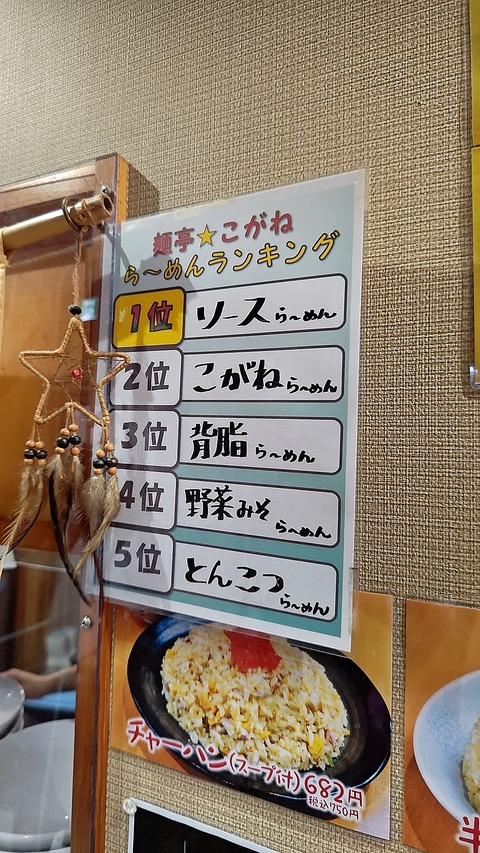 麺亭★こがね
ら〜めんランキング
1位 ソースら〜めん
2位 こがねら〜めん
3位 背脂ら〜めん
4位 野菜みそら〜めん
5位 とんこつら〜めん
チャーハン(スープ付)682円
税込750円
半